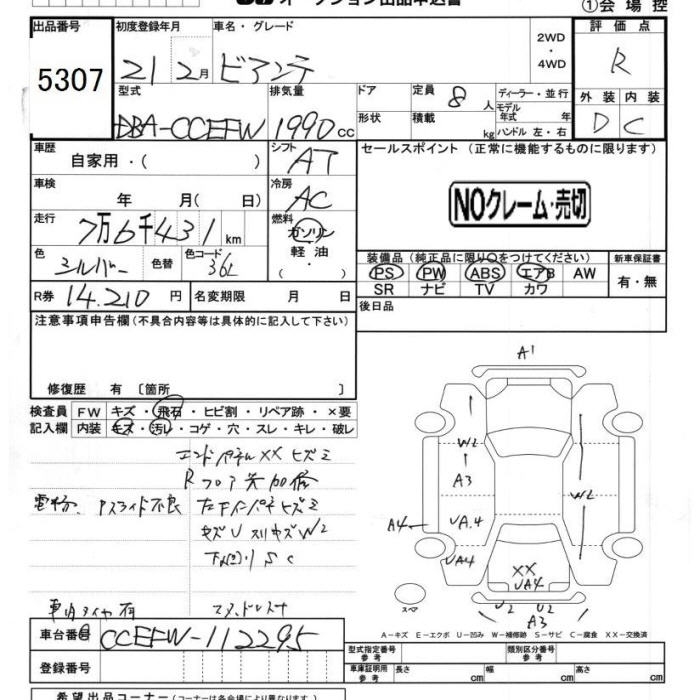 オークション出品申込書 ①会場控
出品番号 5307
初度登録年月 21 2月
車名・グレード ビアンテ
2WD・4WD
評価点 R
型式 DBA-CCEFW
排気量 1990 cc
ドア 形状
定員 8 人
積載 kg
ディーラー・並行
モデル年式 年
ハンドル 左・右
外装 D 内装 C
車歴 自家用・( )
シフト AT
セールスポイント (正常に機能するものに限ります)
NOクレーム・売切
車検 年 月( 日)
冷房 AC
走行 7万6千431 km
燃料 ガソリン 軽油
色 シルバー 色替 色コード 36L
装備品 (純正品に限り○をつけてください) 新車保証書
PS PW ABS エアB AW 有・無
SR ナビ TV カワ
R券 14.210 円 名変期限 月 日
後日品
注意事項申告欄 (不具合内容等は具体的に記入して下さい)
修復歴 有 [箇所 ]
検査員記入欄
FW キズ・飛石・ヒビ割・リペア跡・×要
内装 キズ・汚れ・コゲ・穴・スレ・キレ・破レ
エンドパネルXX ヒズミ
Rフロア
スライド不良
キズU スリキズ W2
SC
有
A1
W2
A3
W2
A4
UA4
UA4
XX
UA4
U2 U2
A3
スペア
A－キズ E－エクボ U－凹み W－補修跡 S－サビ C－腐食 XX－交換済
車台番号 CCEFW-112295
型式指定番号 参考 類別区分番号 参考
登録番号
車庫証明用 参考 長さ cm 幅 cm 高さ cm
希望出品コーナー (コーナーは各会場により異なります)